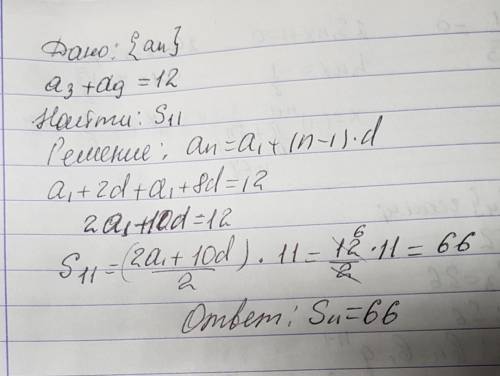 Дано: {an}
a₃ + a₉ = 12
Найти: S₁₁
Решение: an = a₁ + (n-1)·d
a₁ + 2d + a₁ + 8d = 12
2a₁ + 10d = 12
S₁₁ = (2a₁ + 10d)/2 · 11 = 12/2 6 · 11 = 66
Ответ: S₁₁ = 66